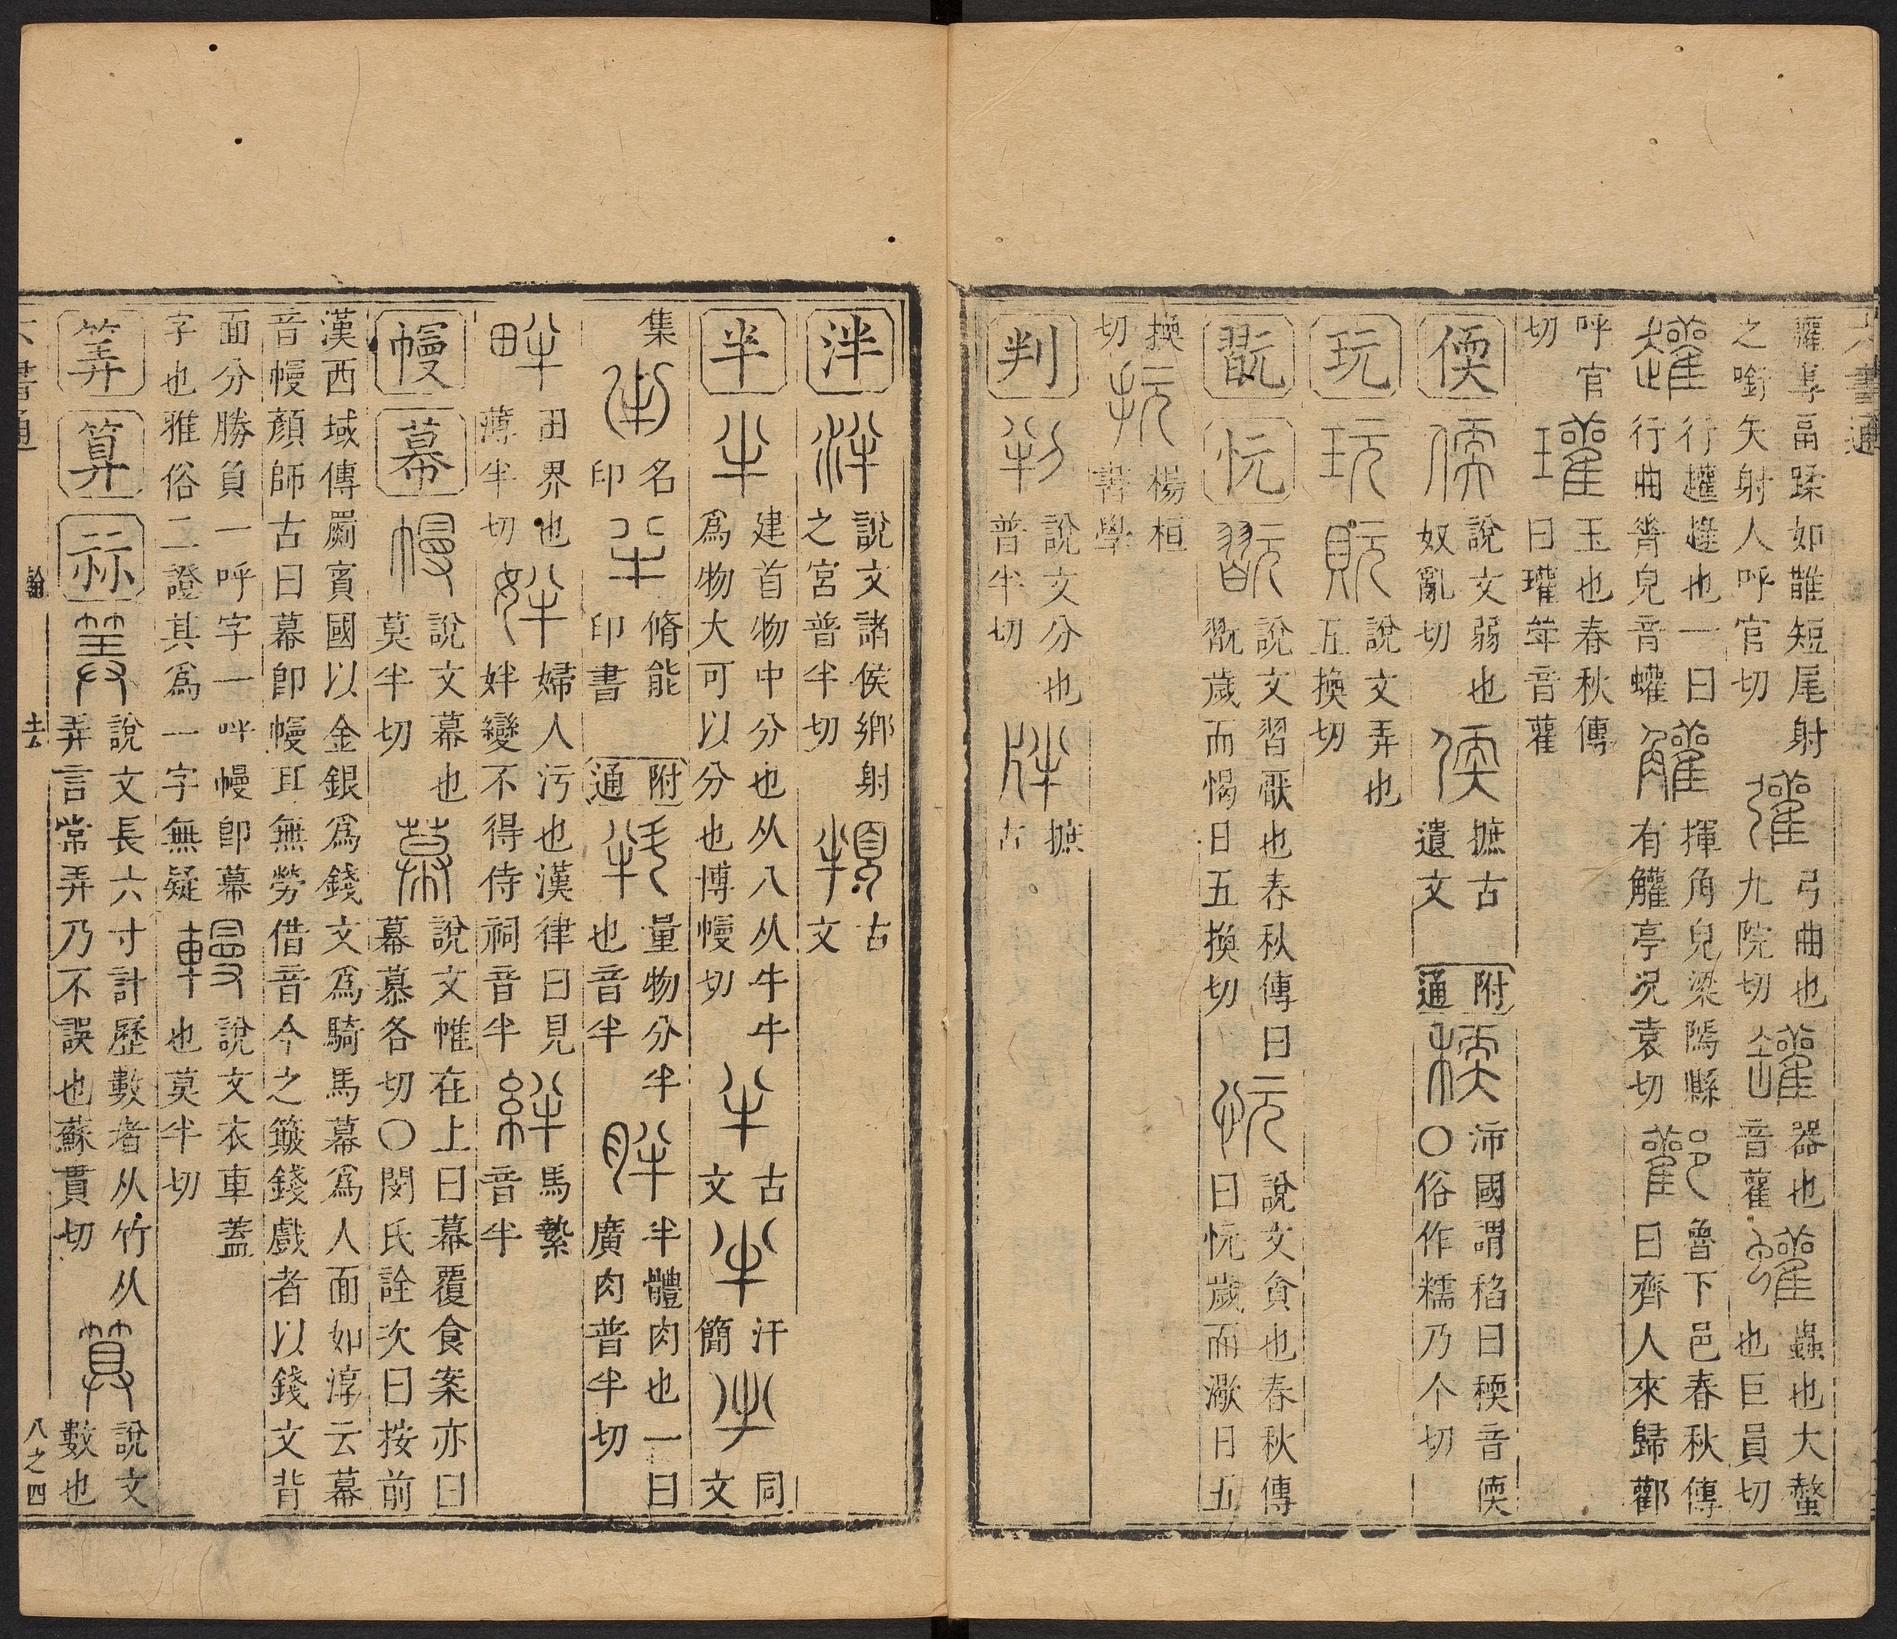 六書通
鸛專畐蹂如䧿短尾射
之銜矢射人呼官切
弓曲也
九院切
器也
音雚
蟲也大螫
也巨員切
行趯趯也一曰
行曲脊皃音蠸
揮角皃梁隝縣
有觿亭况袁切
魯下邑春秋傳
曰齊人來歸酄
呼官
切
玉也春秋傳
曰瓘斝音雚
偄
說文弱也
奴亂切
摭古
遺文
附
通
沛國謂稻曰稬音偄
〇俗作糯乃个切
玩
說文弄也
五換切
翫
忨
說文習厭也春秋傳曰
翫歲而愒日五換切
說文貪也春秋傳
曰忨歲而㵣日五
換
切
楊桓
書學
判
說文分也
普半切
摭
古
泮
說文諸侯鄉射
之宮普半切
古
文
半
建首物中分也从八从牛牛
爲物大可以分也博幔切
古
文
汗
簡
同
文
集
名
印
脩能
印書
附
通
量物分半
也音半
半體肉也一曰
廣肉普半切
田界也
薄半切
婦人污也漢律曰見
姅變不得侍祠音半
馬縶
音半
幔
幕
說文幕也
莫半切
說文帷在上曰幕覆食案亦曰
幕慕各切〇閔氏詮次曰按前
漢西域傳罽賓國以金銀爲錢文爲騎馬幕爲人面如淳云幕
音幔顏師古曰幕卽幔耳無勞借音今之簸錢戲者以錢文背
面分勝負一呼字一呼幔卽幕
字也雅俗二證其爲一字無疑
說文衣車蓋
也莫半切
筭
算
祘
說文長六寸計歷數者从竹从
弄言常弄乃不誤也蘇貫切
說文
數也
六書通
翰
去
八之四